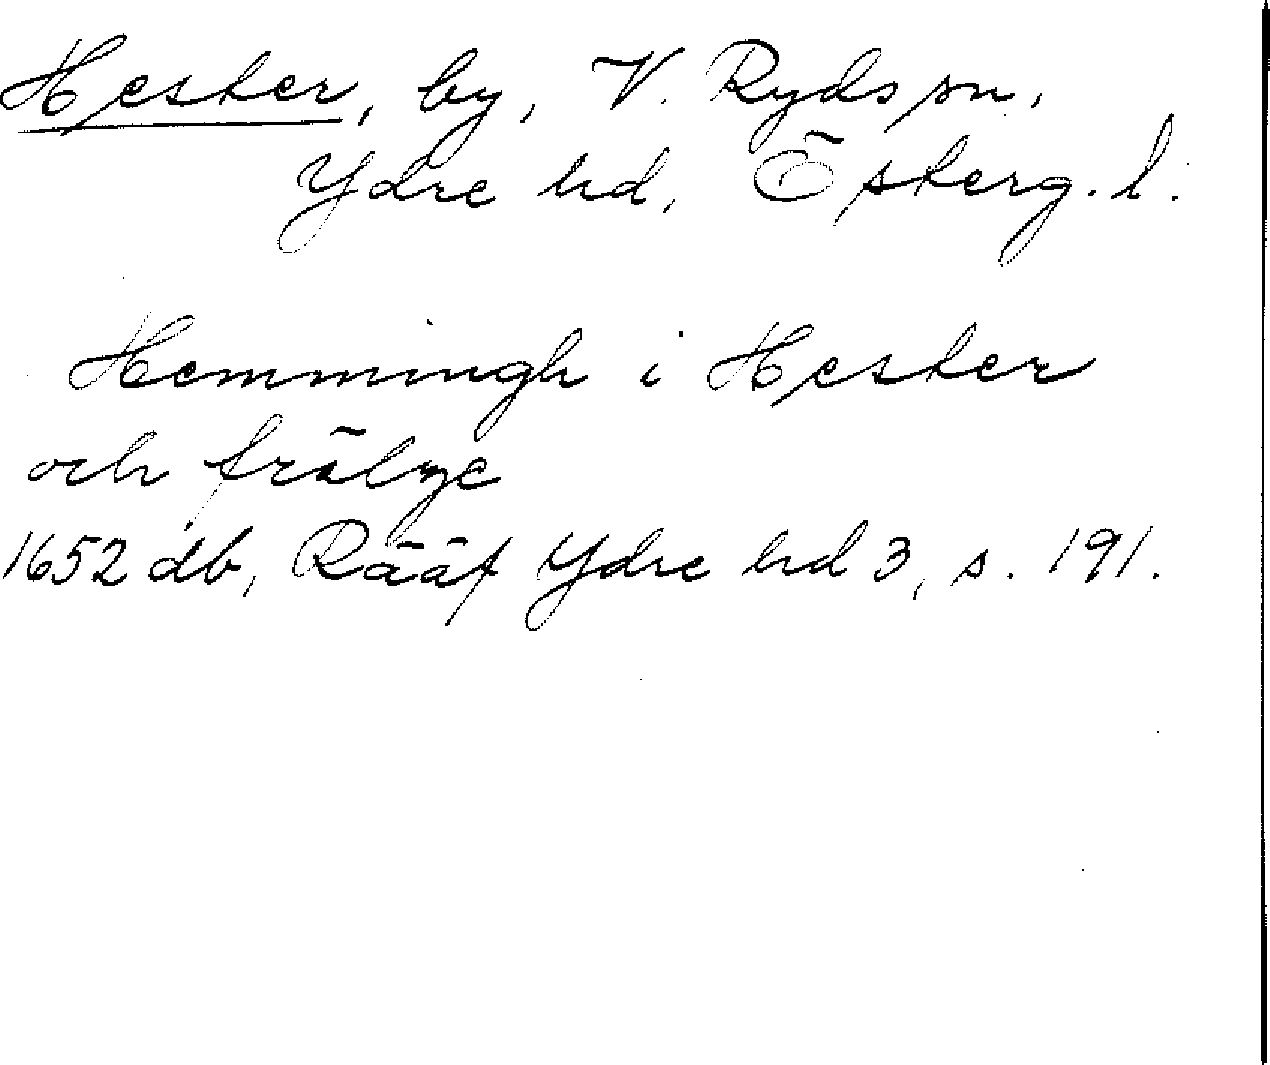 Hjester, by, V. Ryds sn,
Ydre hd, Österg. l.
Hemmingh i Hjester
och frälze
1652 db, Rääf Ydre hd 3, s. 191.